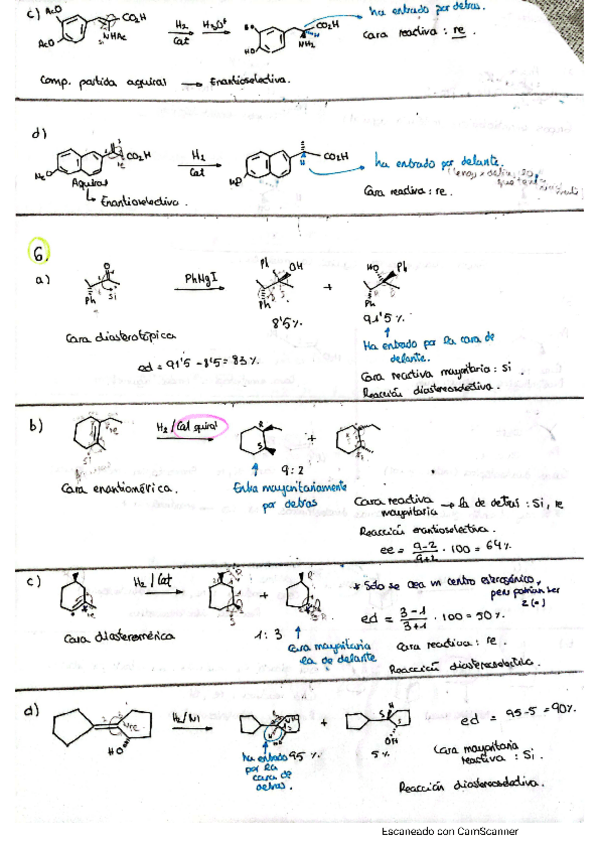 c)
AcO
AcO
CO2H
NHAc
H2
Cat
H3O+
HO
CO2H
NH2
H
ha entrado por detras.
Cara reactiva : re.
Comp. partida aquiral → Enantioselectiva.
d)
CO2H
MeO
Aquiral
↳ Enantioselectiva
H2
Cat
CO2H
H
ha entrado por delante.
Cara reactiva : re.
6.
a)
O
Ph
Si
PhMgI
Ph
OH
Ph
8'5 %.
+
HO
Ph
Ph
91'5 %.
Ha entrado por la cara de
delante.
Cara diasterotópica
ed = 91'5 - 8'5 = 83 %.
Cara reactiva mayoritaria : Si
Reacción diastereoselectiva.
b)
re
Si
H2 / Cat quiral
R
S
+
9 : 2
Cara enantiomérica.
Entra mayoritariamente
por detras
Cara reactiva
mayoritaria → la de detras : Si, re
Reacción enantioselectiva.
ee = 9-2 / 9+2 · 100 = 64 %
c)
H2 / Cat
+
1 : 3
Cara diasteromérica
Cara mayoritaria
la de delante
* Solo se crea un centro estereogénico,
pero podrian ser
2 (*)
ed = 3-1 / 3+1 · 100 = 50 %.
Cara reactiva : re.
Reacción diastereoselectiva.
d)
re
HO
H2/Ni
95 %
+
S
S
OH
5 %
ha entrado
por la
cara de
detras.
ed = 95-5 = 90%.
Cara mayoritaria
reactiva : Si.
Reacción diastereoselectiva.
Escaneado con CamScanner